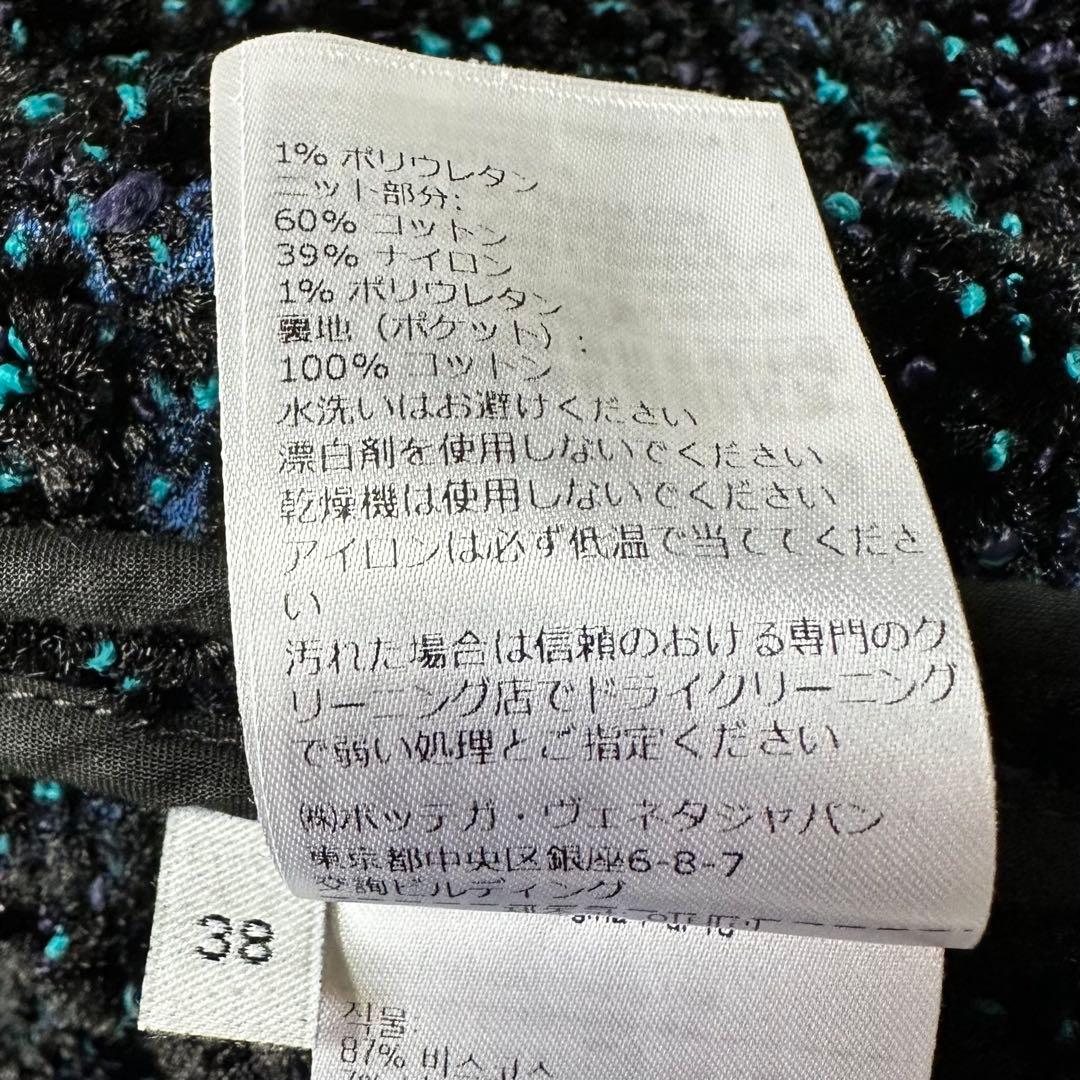 1% ポリウレタン
ニット部分:
60% コットン
39% ナイロン
1% ポリウレタン
裏地 (ポケット) :
100% コットン
水洗いはお避けください
漂白剤を使用しないでください
乾燥機は使用しないでください
アイロンは必ず低温で当ててくださ
い
汚れた場合は信頼のおける専門のク
リーニング店でドライクリーニング
で弱い処理とご指定ください
(株)ボッテガ・ヴェネタジャパン
東京都中央区銀座6-8-7
交詢ビルディング
38
직물:
87% 비스코스